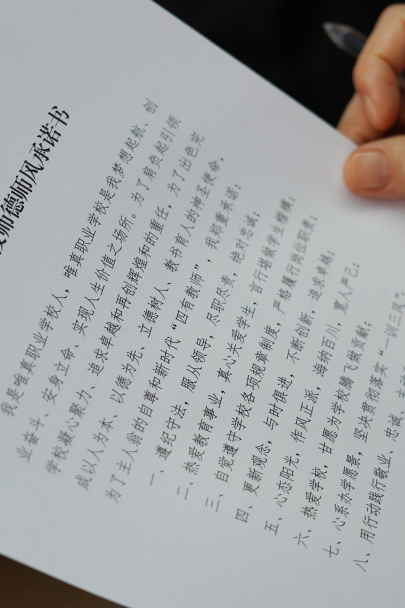 师德师风承诺书
我是惟真职业学校人，惟真职业学校是我梦想起航、创
业奋斗、安身立命、实现人生价值之场所。为了肩负起引领
学校凝心聚力、追求卓越和再创辉煌和的重任，为了出色完
成以人为本、以德为先、立德树人、教书育人的神圣使命，
为了主人翁的自尊和新时代“四有教师”，我郑重承诺：
一、遵纪守法，服从领导，尽职尽责，绝对忠诚；
二、热爱教育事业，真心关爱学生，言行堪做学生楷模；
三、自觉遵守学校各项规章制度，严格履行岗位职责；
四、更新观念，与时俱进，不断创新，追求卓越；
五、心态阳光，作风正派，海纳百川，宽人严己；
六、热爱学校，甘愿为学校腾飞做贡献；
七、心系办学愿景，坚决贯彻落实“一训三风”
八、用行动践行敬业、忠诚、